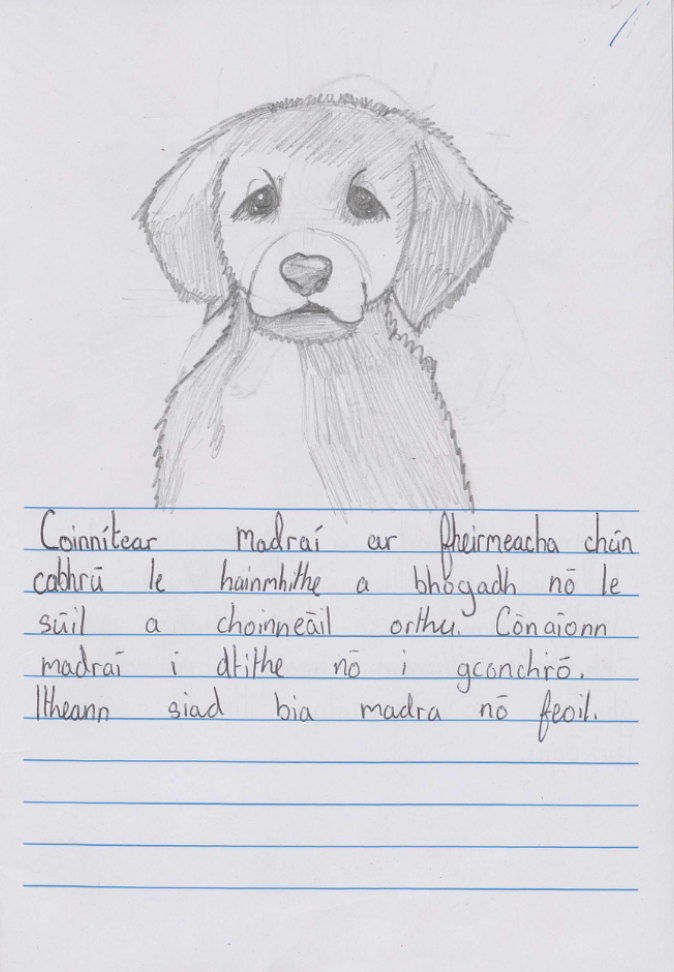 Coinnítear madraí ar fheirmeacha chún
cabhrú le hainmhithe a bhogadh nó le
súil a choinneáil orthu. Cónaíonn
madraí i dtithe nó i gconchró.
Itheann siad bia madra nó feoil.